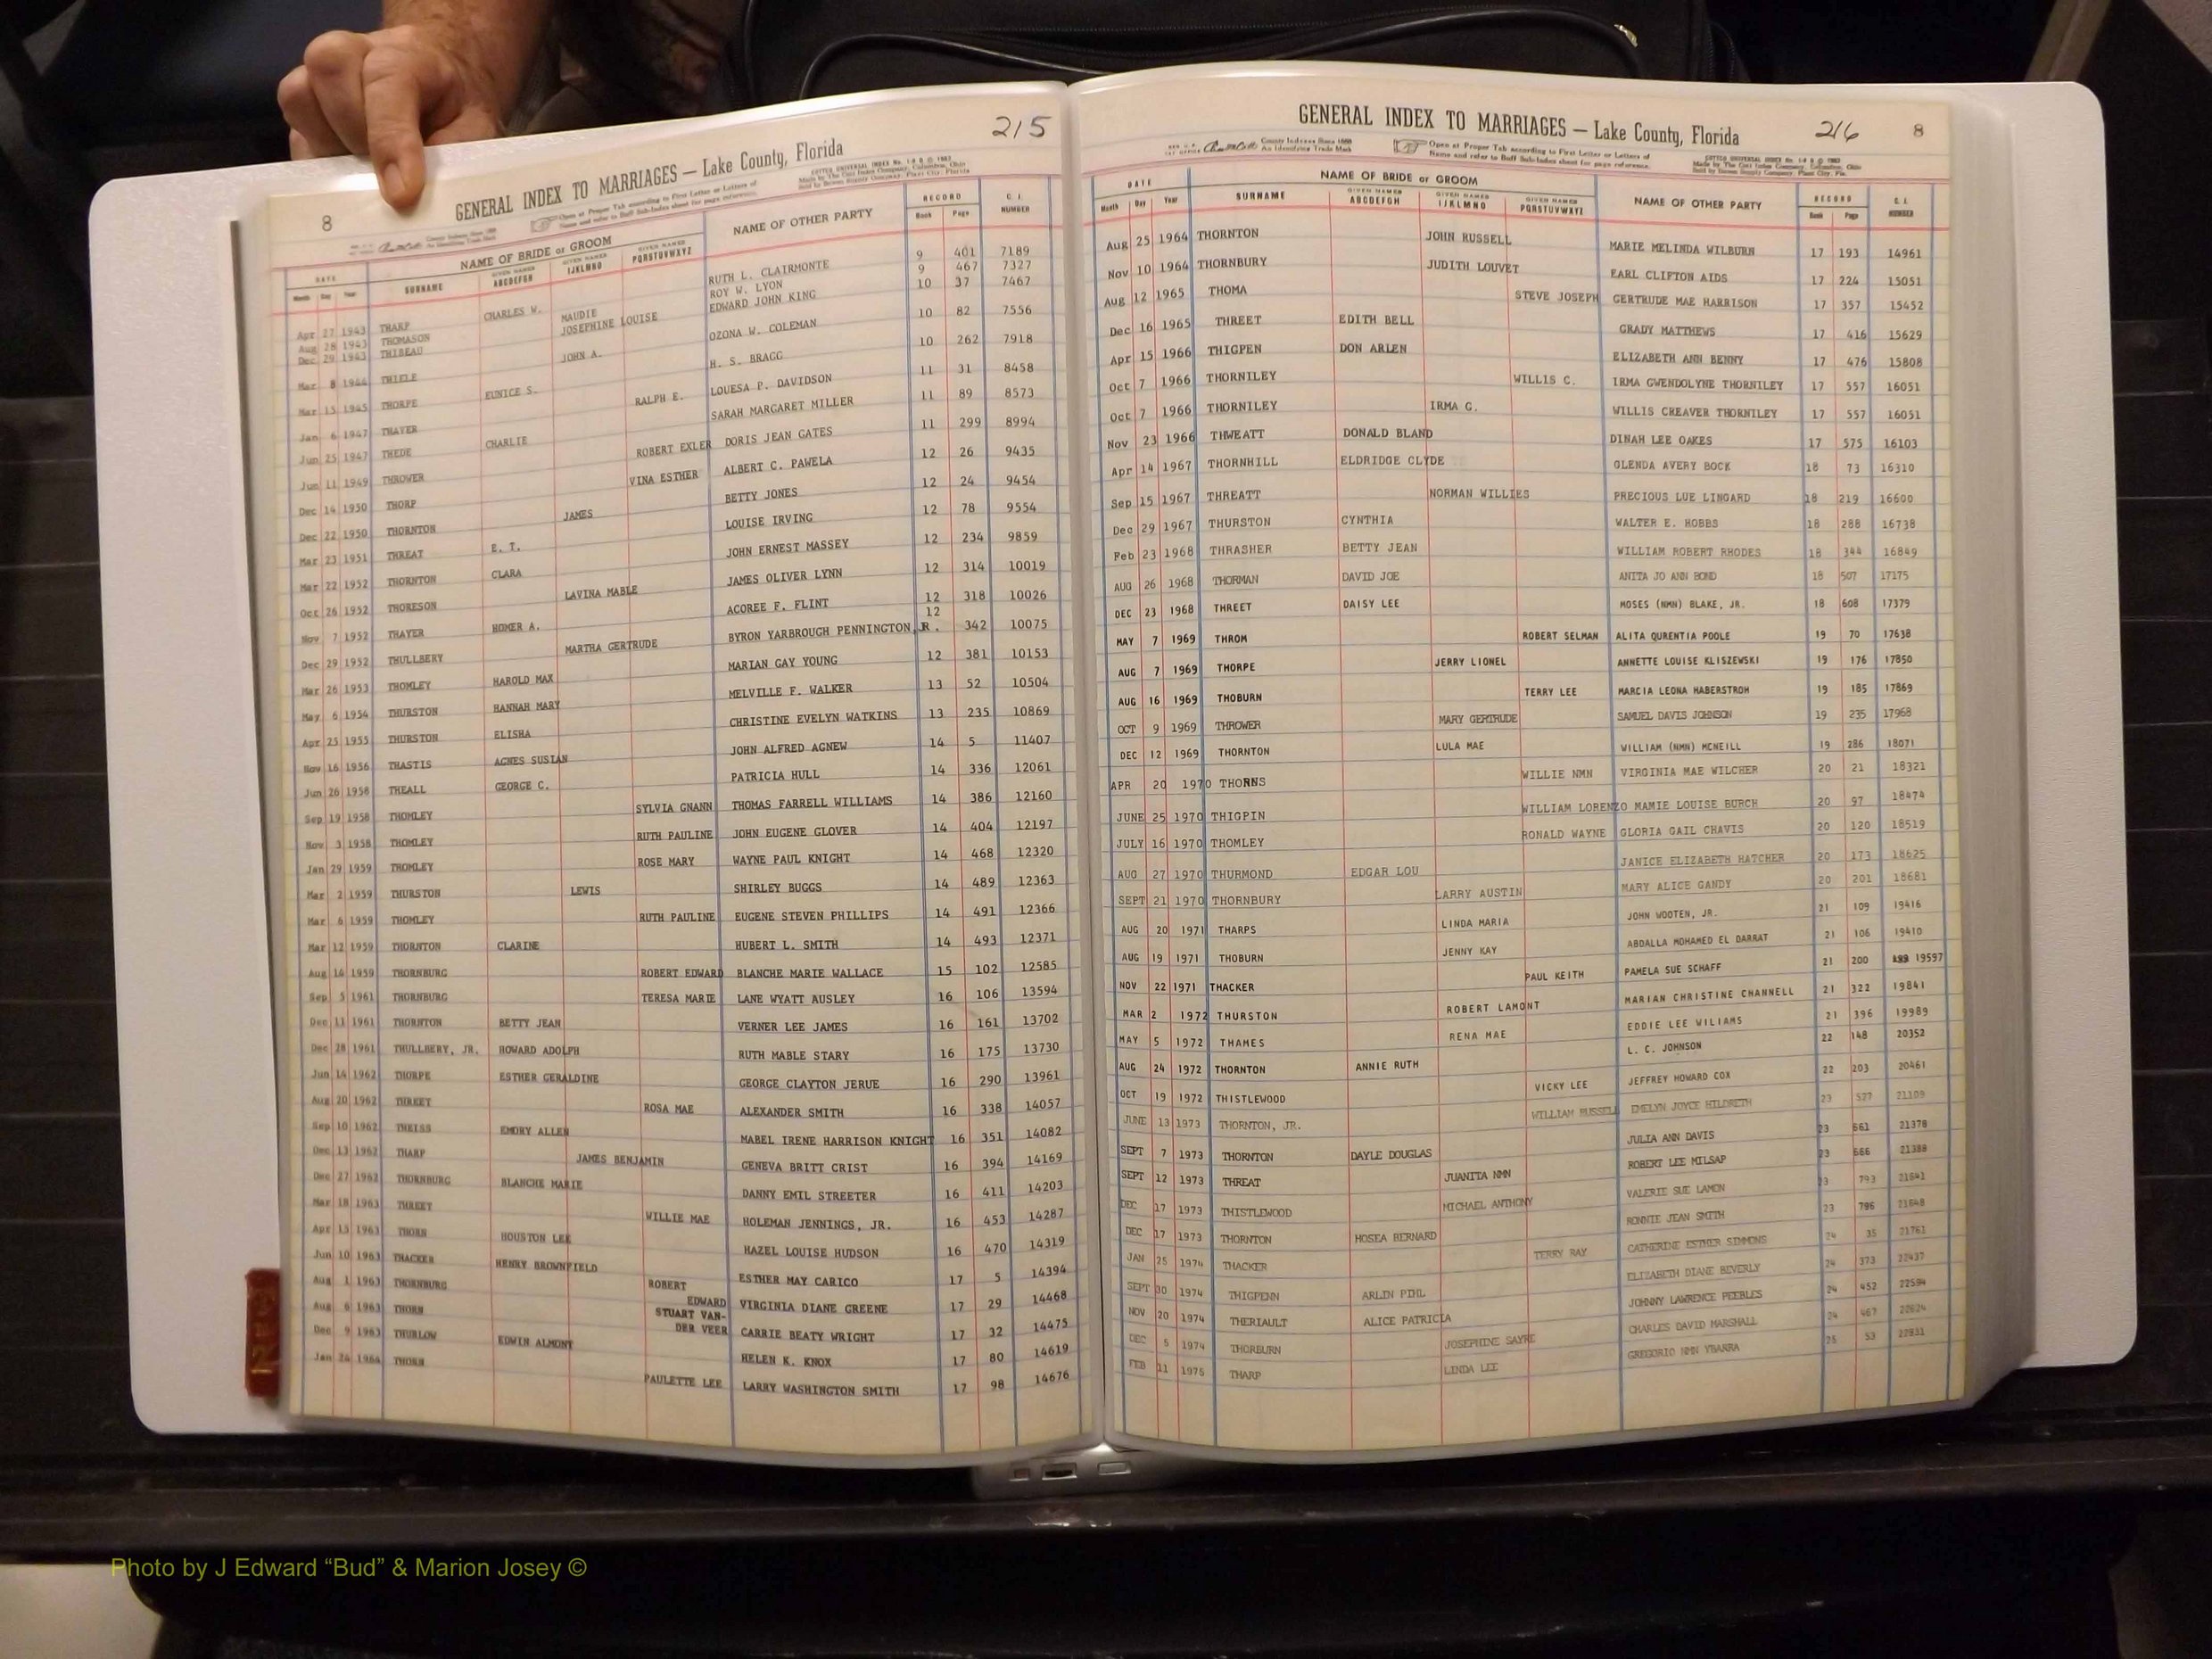 215
8
GENERAL INDEX TO MARRIAGES — Lake County, Florida
Open at Proper Tab according to First Letter or Letters of
Name and refer to Buff Sub-Index sheet for page reference.
DATE NAME OF BRIDE or GROOM NAME OF OTHER PARTY RECORD C. I. NUMBER
Month Day Year SURNAME GIVEN NAMES ABCDEFGH GIVEN NAMES IJKLMNO GIVEN NAMES PQRSTUVWXYZ Book Page
Apr 27 1943 THARP CHARLES W. RUTH L. CLAIRMONTE 9 401 7189
Aug 28 1943 THOMASON MAUDIE ROY W. LYON 9 467 7327
Dec 29 1943 THIBEAU JOSEPHINE LOUISE EDWARD JOHN KING 10 37 7467
Mar 8 1944 THIELE JOHN A. OZONA W. COLEMAN 10 82 7556
Mar 13 1945 THORPE EUNICE S. H. S. BRAGG 10 262 7918
Jan 6 1947 THAYER RALPH E. LOUESA P. DAVIDSON 11 31 8458
Jun 25 1947 THEDE CHARLIE SARAH MARGARET MILLER 11 89 8573
Jun 11 1949 THROWER ROBERT EXLER DORIS JEAN GATES 11 299 8994
Dec 14 1950 THORP VINA ESTHER ALBERT C. PAWELA 12 26 9435
Dec 22 1950 THORNTON JAMES BETTY JONES 12 24 9454
Mar 23 1951 THREAT E. T. LOUISE IRVING 12 78 9554
Mar 22 1952 THORNTON CLARA JOHN ERNEST MASSEY 12 234 9859
Oct 26 1952 THORESON LAVINA MABLE JAMES OLIVER LYNN 12 314 10019
Nov 7 1952 THAYER HOMER A. ACOREE F. FLINT 12 318 10026
Dec 29 1952 THULLBERY MARTHA GERTRUDE BYRON YARBROUGH PENNINGTON,JR. 12 342 10075
Mar 26 1953 THOMLEY HAROLD MAX MARIAN GAY YOUNG 12 381 10153
May 6 1954 THURSTON HANNAH MARY MELVILLE F. WALKER 13 52 10504
Apr 25 1955 THURSTON ELISHA CHRISTINE EVELYN WATKINS 13 235 10869
Nov 16 1956 THASTIS AGNES SUSIAN JOHN ALFRED AGNEW 14 5 11407
Jun 26 1958 THEALL GEORGE C. PATRICIA HULL 14 336 12061
Sep 19 1958 THOMLEY SYLVIA GNANN THOMAS FARRELL WILLIAMS 14 386 12160
Nov 3 1958 THOMLEY RUTH PAULINE JOHN EUGENE GLOVER 14 404 12197
Jan 29 1959 THOMLEY ROSE MARY WAYNE PAUL KNIGHT 14 468 12320
Mar 2 1959 THURSTON LEWIS SHIRLEY BUGGS 14 489 12363
Mar 6 1959 THOMLEY RUTH PAULINE EUGENE STEVEN PHILLIPS 14 491 12366
Mar 12 1959 THORNTON CLARINE HUBERT L. SMITH 14 493 12371
Aug 14 1959 THORNBURG ROBERT EDWARD BLANCHE MARIE WALLACE 15 102 12585
Sep 5 1961 THORNBURG TERESA MARIE LANE WYATT AUSLEY 16 106 13594
Dec 11 1961 THORNTON BETTY JEAN VERNER LEE JAMES 16 161 13702
Dec 28 1961 THULLBERY, JR. HOWARD ADOLPH RUTH MABLE STARY 16 175 13730
Jun 14 1962 THORPE ESTHER GERALDINE GEORGE CLAYTON JERUE 16 290 13961
Aug 20 1962 THREET ROSA MAE ALEXANDER SMITH 16 338 14057
Sep 10 1962 THEISS EMORY ALLEN MABEL IRENE HARRISON KNIGHT 16 351 14082
Dec 13 1962 THARP JAMES BENJAMIN GENEVA BRITT CRIST 16 394 14169
Dec 27 1962 THORNBURG BLANCHE MARIE DANNY EMIL STREETER 16 411 14203
Mar 18 1963 THREET WILLIE MAE HOLEMAN JENNINGS, JR. 16 453 14287
Apr 15 1963 THORN HOUSTON LEE HAZEL LOUISE HUDSON 16 470 14319
Jun 10 1963 THACKER HENRY BROWNFIELD ESTHER MAY CARICO 17 5 14394
Aug 1 1963 THORNBURG ROBERT EDWARD VIRGINIA DIANE GREENE 17 29 14468
Aug 6 1963 THORN STUART VAN-DER VEER CARRIE BEATY WRIGHT 17 32 14475
Dec 9 1963 THURLOW EDWIN ALMONT HELEN K. KNOX 17 80 14619
Jan 24 1964 THORN PAULETTE LEE LARRY WASHINGTON SMITH 17 98 14676
216
8
GENERAL INDEX TO MARRIAGES — Lake County, Florida
County Indexes Since 1888
An Identifying Trade Mark
Open at Proper Tab according to First Letter or Letters of
Name and refer to Buff Sub-Index sheet for page reference.
DATE NAME OF BRIDE or GROOM NAME OF OTHER PARTY RECORD C. I. NUMBER
Month Day Year SURNAME GIVEN NAMES ABCDEFGH GIVEN NAMES IJKLMNO GIVEN NAMES PQRSTUVWXYZ Book Page
Aug 25 1964 THORNTON JOHN RUSSELL MARIE MELINDA WILBURN 17 193 14961
Nov 10 1964 THORNBURY JUDITH LOUVET EARL CLIFTON AIDS 17 224 15051
Aug 12 1965 THOMA STEVE JOSEPH GERTRUDE MAE HARRISON 17 357 15452
Dec 16 1965 THREET EDITH BELL GRADY MATTHEWS 17 416 15629
Apr 15 1966 THIGPEN DON ARLEN ELIZABETH ANN BENNY 17 476 15808
Oct 7 1966 THORNILEY WILLIS C. IRMA GWENDOLYNE THORNILEY 17 557 16051
Oct 7 1966 THORNILEY IRMA G. WILLIS CREAVER THORNILEY 17 557 16051
Nov 23 1966 THWEATT DONALD BLAND DINAH LEE OAKES 17 575 16103
Apr 14 1967 THORNHILL ELDRIDGE CLYDE GLENDA AVERY BOCK 18 73 16310
Sep 15 1967 THREATT NORMAN WILLIES PRECIOUS LUE LINGARD 18 219 16600
Dec 29 1967 THURSTON CYNTHIA WALTER E. HOBBS 18 288 16738
Feb 23 1968 THRASHER BETTY JEAN WILLIAM ROBERT RHODES 18 344 16849
AUG 26 1968 THORMAN DAVID JOE ANITA JO ANN BOND 18 507 17175
DEC 23 1968 THREET DAISY LEE MOSES (NMN) BLAKE, JR. 18 608 17379
MAY 7 1969 THROM ROBERT SELMAN ALITA QURENTIA POOLE 19 70 17638
AUG 7 1969 THORPE JERRY LIONEL ANNETTE LOUISE KLISZEWSKI 19 176 17850
AUG 16 1969 THOBURN TERRY LEE MARCIA LEONA HABERSTROH 19 185 17869
OCT 9 1969 THROWER MARY GERTRUDE SAMUEL DAVIS JOHNSON 19 235 17968
DEC 12 1969 THORNTON LULA MAE WILLIAM (NMN) MCNEILL 19 286 18071
APR 20 1970 THORNS WILLIE NMN VIRGINIA MAE WILCHER 20 21 18321
JUNE 25 1970 THIGPIN WILLIAM LORENZO MAMIE LOUISE BURCH 20 97 18474
JULY 16 1970 THOMLEY RONALD WAYNE GLORIA GAIL CHAVIS 20 120 18519
AUG 27 1970 THURMOND EDGAR LOU JANICE ELIZABETH HATCHER 20 173 18625
SEPT 21 1970 THORNBURY LARRY AUSTIN MARY ALICE GANDY 20 201 18681
AUG 20 1971 THARPS LINDA MARIA JOHN WOOTEN, JR. 21 109 19416
AUG 19 1971 THOBURN JENNY KAY ABDALLA MOHAMED EL DARRAT 21 106 19410
NOV 22 1971 THACKER PAUL KEITH PAMELA SUE SCHAFF 21 200 19597
MAR 2 1972 THURSTON ROBERT LAMONT MARIAN CHRISTINE CHANNELL 21 322 19841
MAY 5 1972 THAMES RENA MAE EDDIE LEE WILIAMS 21 396 19989
AUG 24 1972 THORNTON ANNIE RUTH L. C. JOHNSON 22 148 20352
OCT 19 1972 THISTLEWOOD VICKY LEE JEFFREY HOWARD COX 22 203 20461
JUNE 13 1973 THORNTON, JR. WILLIAM RUSSELL EMELYN JOYCE HILDRETH 23 527 21109
SEPT 7 1973 THORNTON DAYLE DOUGLAS JULIA ANN DAVIS 23 661 21378
SEPT 12 1973 THREAT JUANITA NMN ROBERT LEE MILSAP 23 666 21388
DEC 17 1973 THISTLEWOOD MICHAEL ANTHONY VALERIE SUE LAMON 23 793 21641
DEC 17 1973 THORNTON HOSEA BERNARD RONNIE JEAN SMITH 23 796 21648
JAN 25 1974 THACKER TERRY RAY CATHERINE ESTHER SIMMONS 24 35 21761
SEPT 30 1974 THIGPENN ARLIN PIHL ELIZABETH DIANE BEVERLY 24 373 22437
NOV 20 1974 THERIAULT ALICE PATRICIA JOHNNY LAWRENCE PEEBLES 24 452 22594
DEC 5 1974 THORBURN JOSEPHINE SAYRE CHARLES DAVID MARSHALL 24 467 22624
FEB 11 1975 THARP LINDA LEE GREGORIO NMN YBARRA 25 53 22831
Photo by J Edward “Bud” & Marion Josey ©